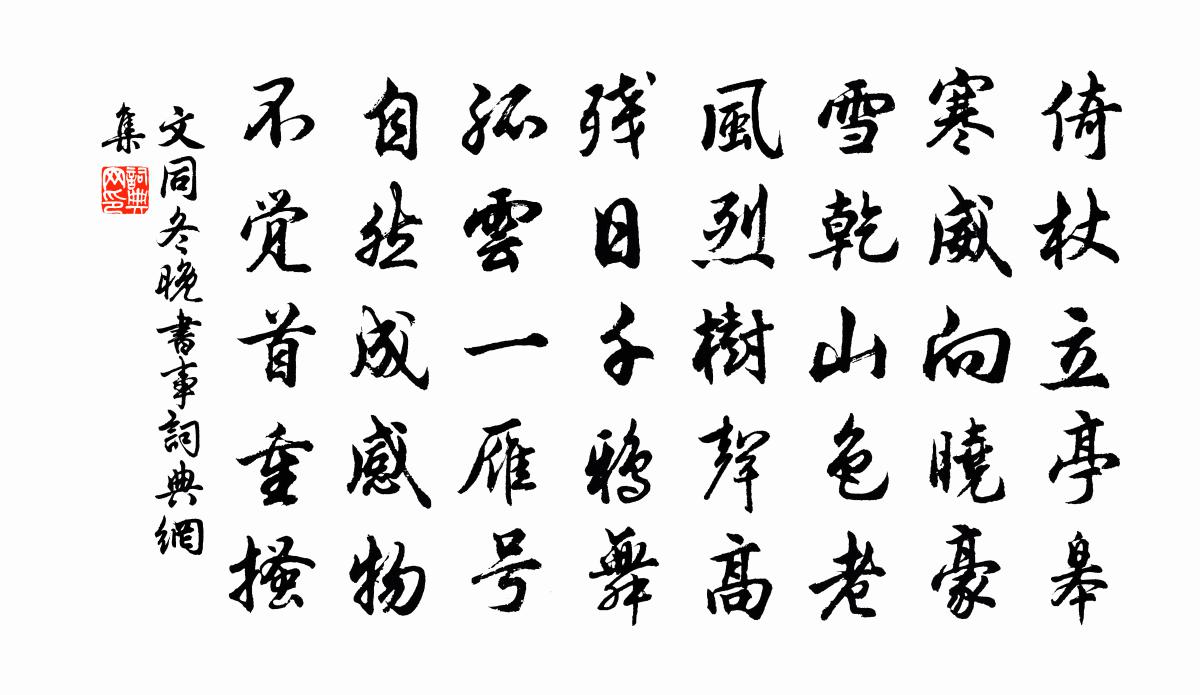 倚杖立亭皋
寒威向曉豪
雪乾山色老
風烈樹聲高
残日千鴉舞
孤雲一雁号
自然成感物
不觉首重搔
文同冬晚書事詞典網
集
詞典网印